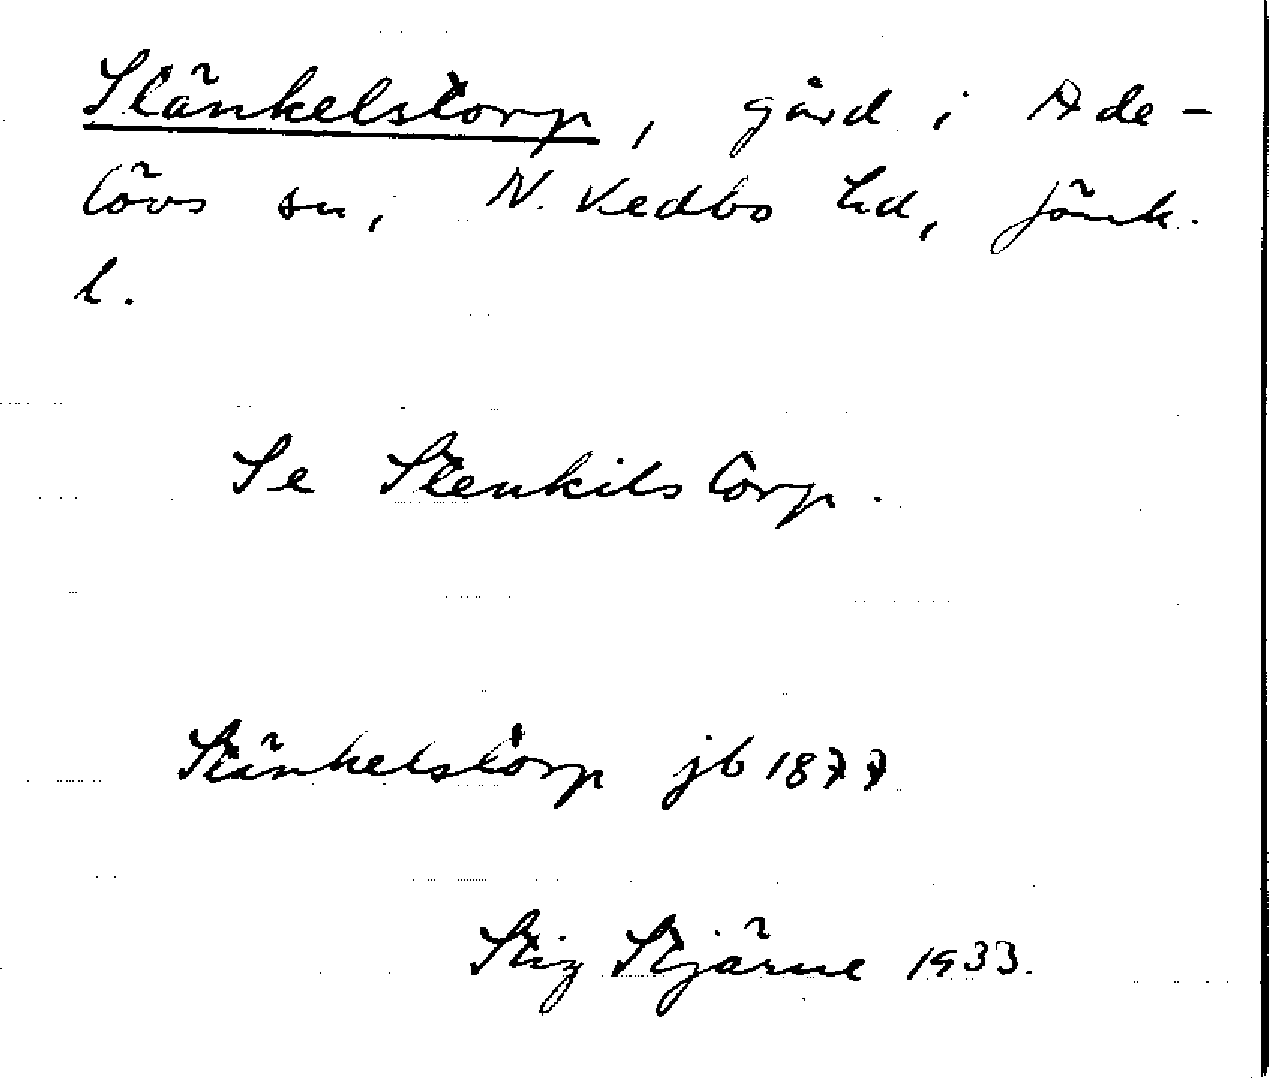 Stänkelstorp, gård i Ade-
lövs sn, N. Vedbo hd, Jönk.
l.
Se Stenkilstorp.
Stänkelstorp jb 1877
Stig Stjärne 1933.